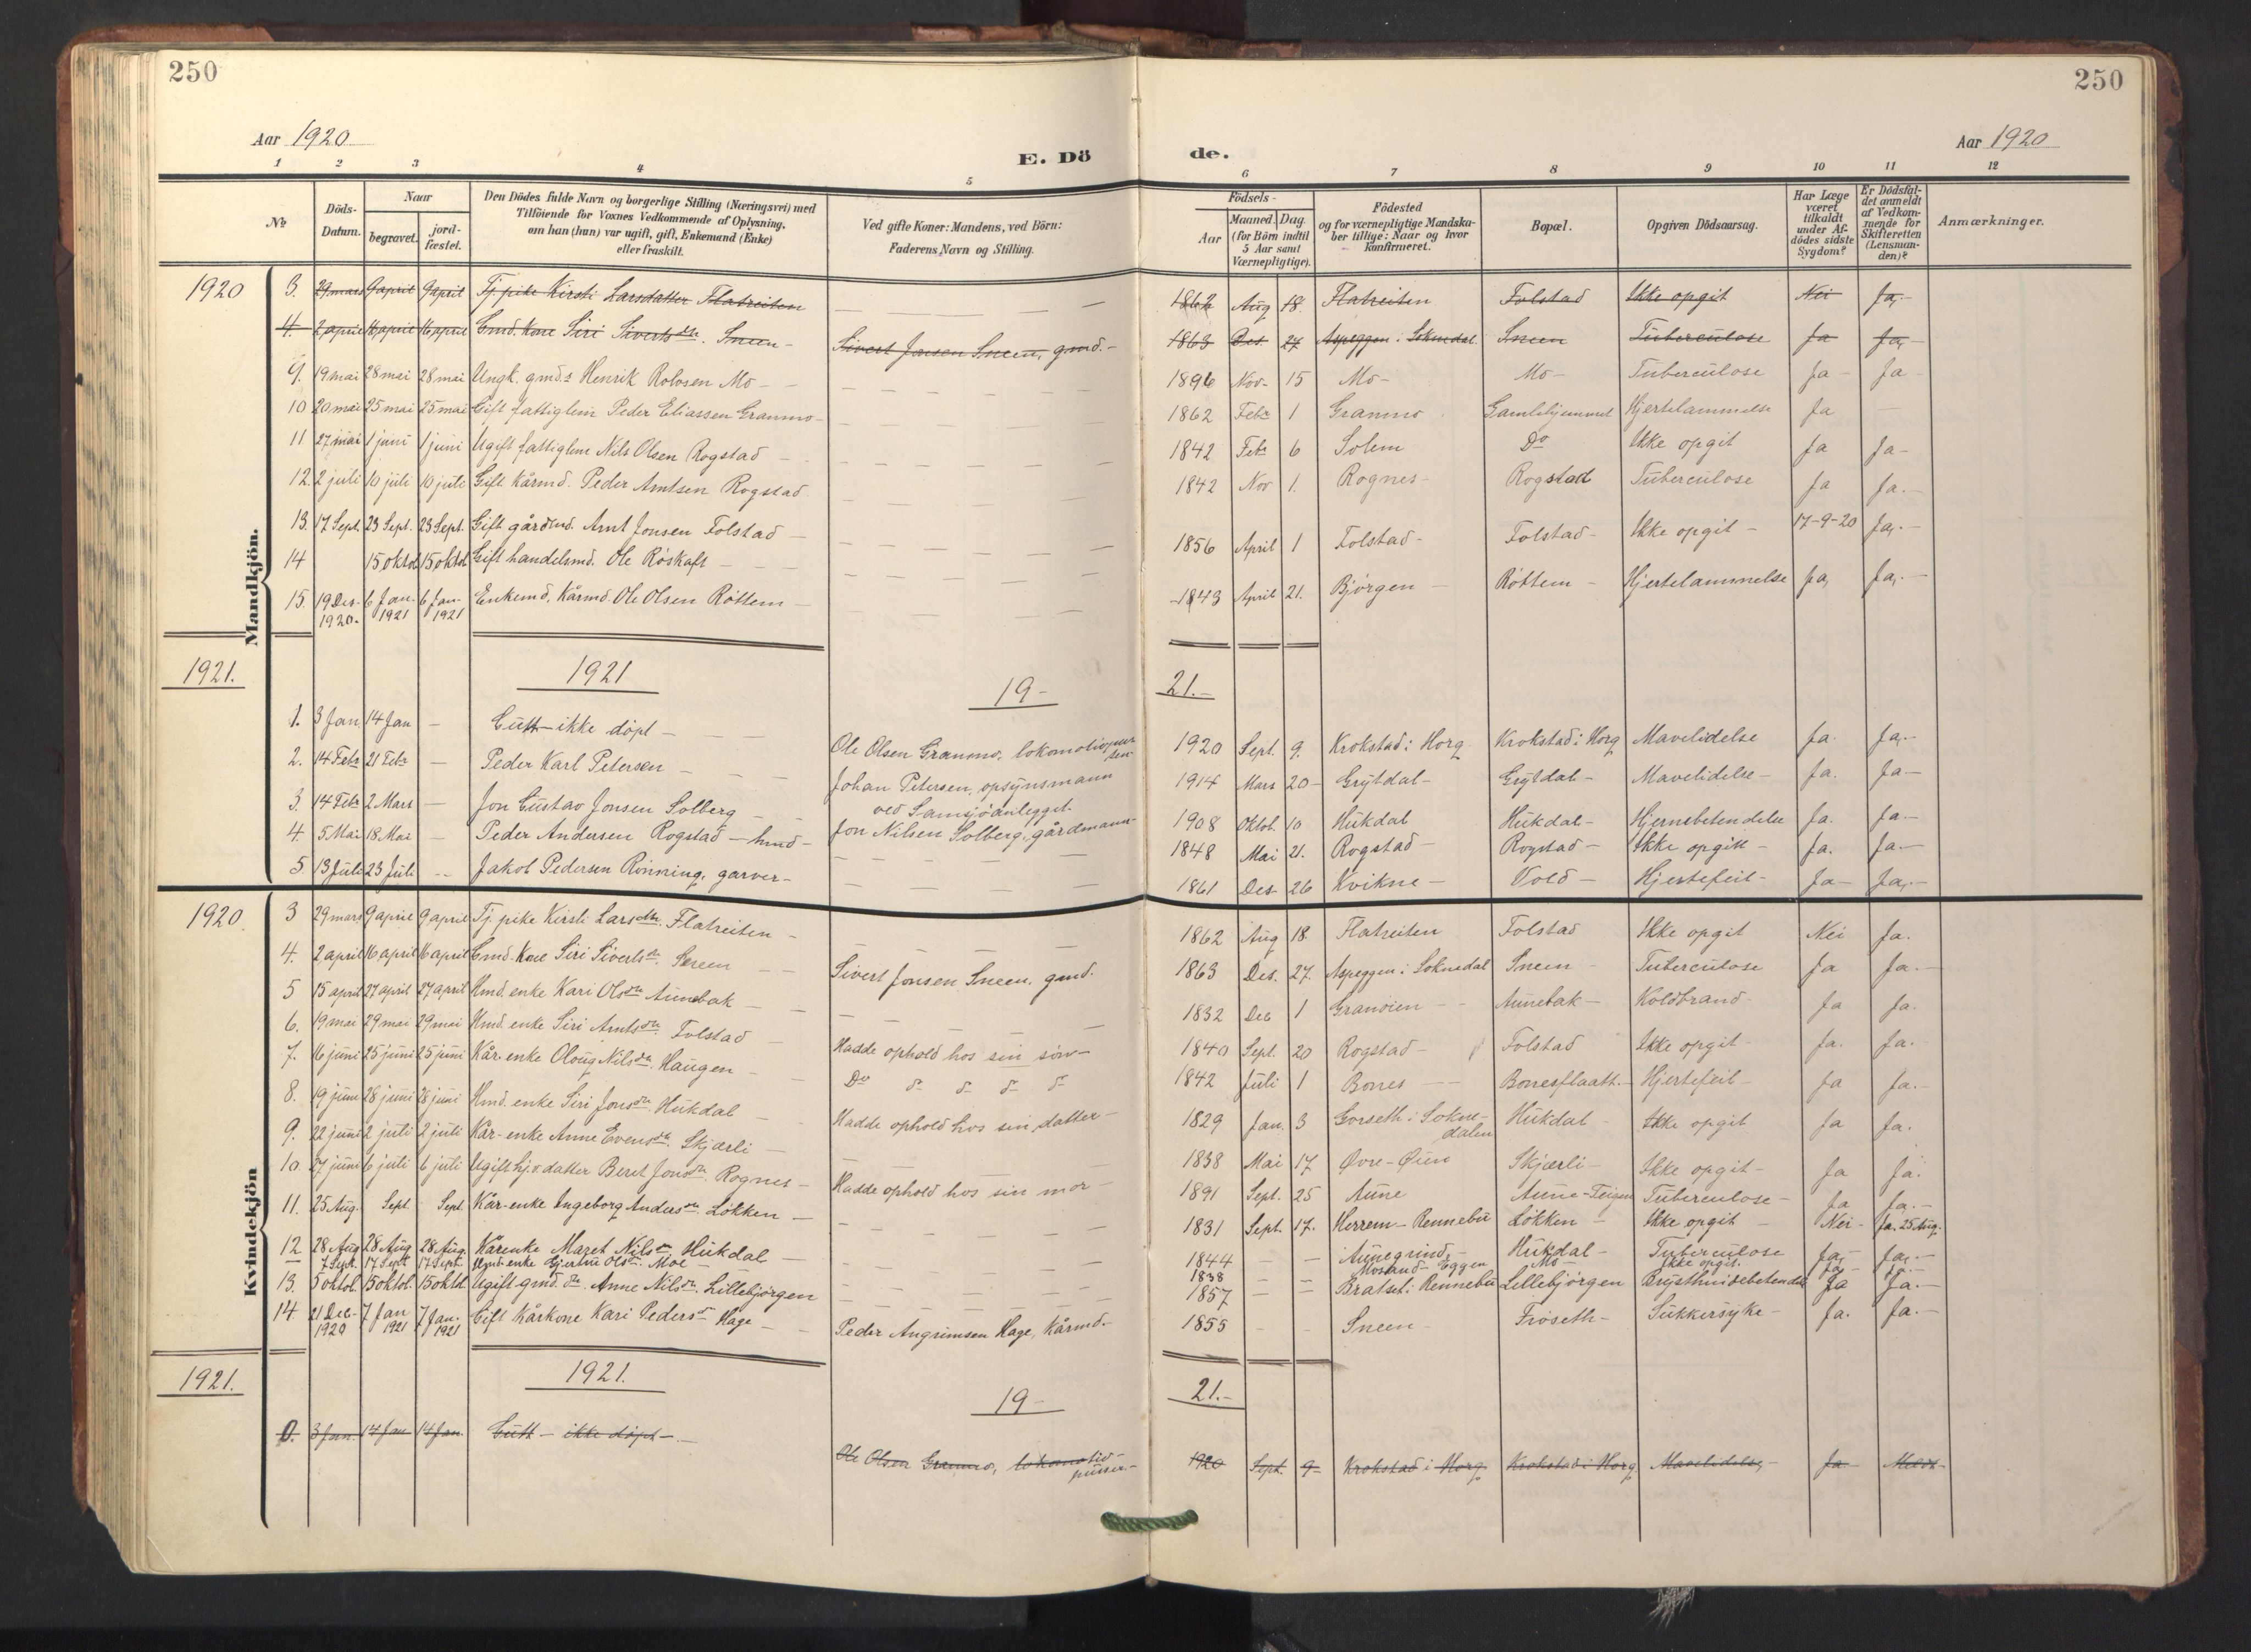 250
250
Aar 1920
Aar 1920
E. Dö
de.
1 2 3 4 5 6 7 8 9 10 11 12
№
Döds-
Datum.
Naar
begravet.
jord-
fæstet.
Den Dödes fulde Navn og borgerlige Stilling (Næringsvei) med
Tilföiende for Voxnes Vedkommende af Oplysning,
om han (hun) var ugift, gift, Enkemand (Enke)
eller fraskilt.
Ved gifte Koner: Mandens, ved Börn:
Faderens Navn og Stilling.
Födsels-
Aar
Maaned. Dag.
(for Börn indtil
5 Aar samt
Værnepligtige).
Födested
og for værnepligtige Mandska-
ber tillige: Naar og hvor
konfirmeret.
Bopæl.
Opgiven Dödsaarsag.
Har Læge
været
tilkaldt
under Af-
dödes sidste
Sygdom?
Er Dödsfal-
det anmeldt
af Vedkom-
mende for
Skifteretten
(Lensman-
den)?
Anmærkninger.
Mandkjön.
1920 3. 29 mars 9 april 9 april Tj. pike Kirsti Larsdatter Flatreiten — 1862 Aug 18. Flatreiten Folstad Ikke opgit Nei Ja.-
4. 2 april 16 april 16 april Gmd. kone Siri Siverts dtr. Sneen - Sivert Jonsen Sneen, gmd.- 1863 Des. 27 Aspeggen i Soknedal Sneen Tuberculose Ja Ja,-
9. 19 mai 28 mai 28 mai Ungk. gmd.s Henrik Rolvsen Mo - 1896 Nov- 15 Mo- Mo- Tuberculose Ja - Ja -
10 20 mai 25 mai 25 mai Gift fattiglem Peder Eliassen Granmo- 1862 Febr 1 Granmo Gamlehjemmet Hjertelammelse Ja
11 27 mai 1 juni 1 juni Ugift fattiglem Nils Olsen Rogstad - 1842 Febr 6 Solem Do Ikke opgit Ja Ja-
12. 2 juli 10 juli 10 juli Gift Kårmd. Peder Arntsen Rogstad 1842 Nov 1. Rognes- Rogstad Tuberculose Ja Ja.-
13. 17 Sept. 23 Sept. 23 Sept. Gift gårdmd. Arnt Jonsen Folstad - 1856 April 1 Folstad- Folstad- Ikke opgit - 17-9-20 Ja,-
14 15 oktob 15 oktob Gift handelsmd. Ole Röskaft -
15. 19 Des. 1920- 6 Jan. 1921 6 Jan- 1921 Enkemd. Kårmd. Ole Olsen Röttem - 1843 April 21. Bjørgen - Röttem - Hjertelammelse Ja, Ja,-
1921. 1921 19- 21.-
1. 3 Jan. 14 Jan - Gutt - ikke døpt - Ole Olsen Granmo, lokomotivpusser 1920 Sept. 9. Krokstad i Horg Krokstad i Horg Mavelidelse Ja. Ja.-
2. 14 Febr 21 Febr - Peder Karl Petersen - Johan Petersen, opsynsmann
ved Samsjöanlegget- 1914 Mars 20- Grytdal- Grytdal- Mavelidelse- Ja. Ja-
3. 14 Febr 2 Mars - Jon Gustav Jonsen Solberg - Jon Nilsen Solberg, gårdmann- 1908 Oktob. 10 Hukdal Hukdal- Hjernebetendelse Ja. Ja-
4. 5 Mai 18 Mai - Peder Andersen Rogstad - hmd- 1848 Mai 21. Rogstad- Rogstad- Ikke opgitt- Ja. Ja-
5. 13 Juli 23 Juli -- Jakob Pedersen Rönning, garver- 1861 Des- 26 Kvikne- Vold- Hjertefeil- Ja- Ja,-
Kvindekjön
1920. 3 29 mars 9 april 9 april Tj. pike Kirsti Lars dtr. Flatreiten - 1862 Aug 18. Flatreiten Folstad Ikke opgit Nei Ja.
4. 2 april 16 april 16 april Gmd. kone Siri Siverts dtr. Sneen - Sivert Jonsen Sneen, gmd. 1863 Des. 27. Aspeggen i Soknedal Sneen - Tuberculose Ja Ja.-
5 15 april 27 april 27 april Hmd. enke Kari Ols dtr Aunebak - 1832 Des 1 Granöien - Aunebak- Koldbrand- Ja Ja.
6. 19 mai 29 mai 29 mai Hmd. enke Siri Arnts dtr. Folstad - Hadde ophold hos sin sön- 1840 Sept. 20 Rogstad- Folstad Ikke opgit- Ja. Ja.
7. 16 juni 25 juni 25 juni Kår. enke Oloug Nils dtr. Haugen - Do d- d- d- d- 1842 Juli 1 Bones - Bonesflaatt.- Hjertefeil- Ja Ja.-
8. 19 juni 28 juni 28 juni Hmd. enke Siri Jons dtr. Hukdal - Hadde ophold hos sin datter- 1829 Jan. 3 Gorseth i Sokne-
dalen Hukdal - Ikke opgit Ja Ja.
9. 22 juni 2 juli 2 juli Kår-enke Anne Evens dtr. Skjærli - 1838 Mai 17 Øvre-Øien Skjærli- Ikke opgit- Ja Ja.
10. 27 juni 6 juli 6 juli Ugift datter Beret Jons dtr. Rognes- Hadde ophold hos sin mor - 1891 Sept. 25 Aune Aune-Teigen Tuberculose- Ja Ja.-
11. 25 Aug. Sept. Sept. Kår-enke Ingeborg Anders dtr. Løkken - 1831 Sept. 17. Herrem-Rennebu Løkken - Ikke opgit - Nei- Ja. 25 Aug.
12 28 Aug 28 Aug 28 Aug. Kårenke Maret Nils dtr. Hukdal - 1844 - - Aunegrind- Hukdal- Tuberculose Ja,- Ja,-
7 Sept. 17 Sept 17 Sept. enke Gjertru Ols dtr. Moe - 1838 Eggen Mo- Ikke opgit. Ja- Ja-
13. 5 oktob. 15 oktob. 15 oktb. Ugift gmd. dtr. Anne Nils dtr. Lillebjörgen 1857 - - Bratset i Rennebu Lillebjørgen Brysthindebetendelse Ja Ja.-
14 21 Des- 1920 7 Jan 1921 7 Jan. 1921 Gift Kårkone Kari Peders dtr Hage - Peder Angrimsen Hage, Kårmd- 1855 - - Sneen- Fröseth- Sukkersyke- Ja. Ja.-
1921. 1921. 19- 21.-
0. 3 Jan. 14 Jan 14 Jan. Gutt - ikke døpt -.- Ole Olsen Granmo, lokomotiv-
pusser.- 1920 Sept. 9- Krokstad i Horg. Krokstad i Horg Mavelidelse- Ja-